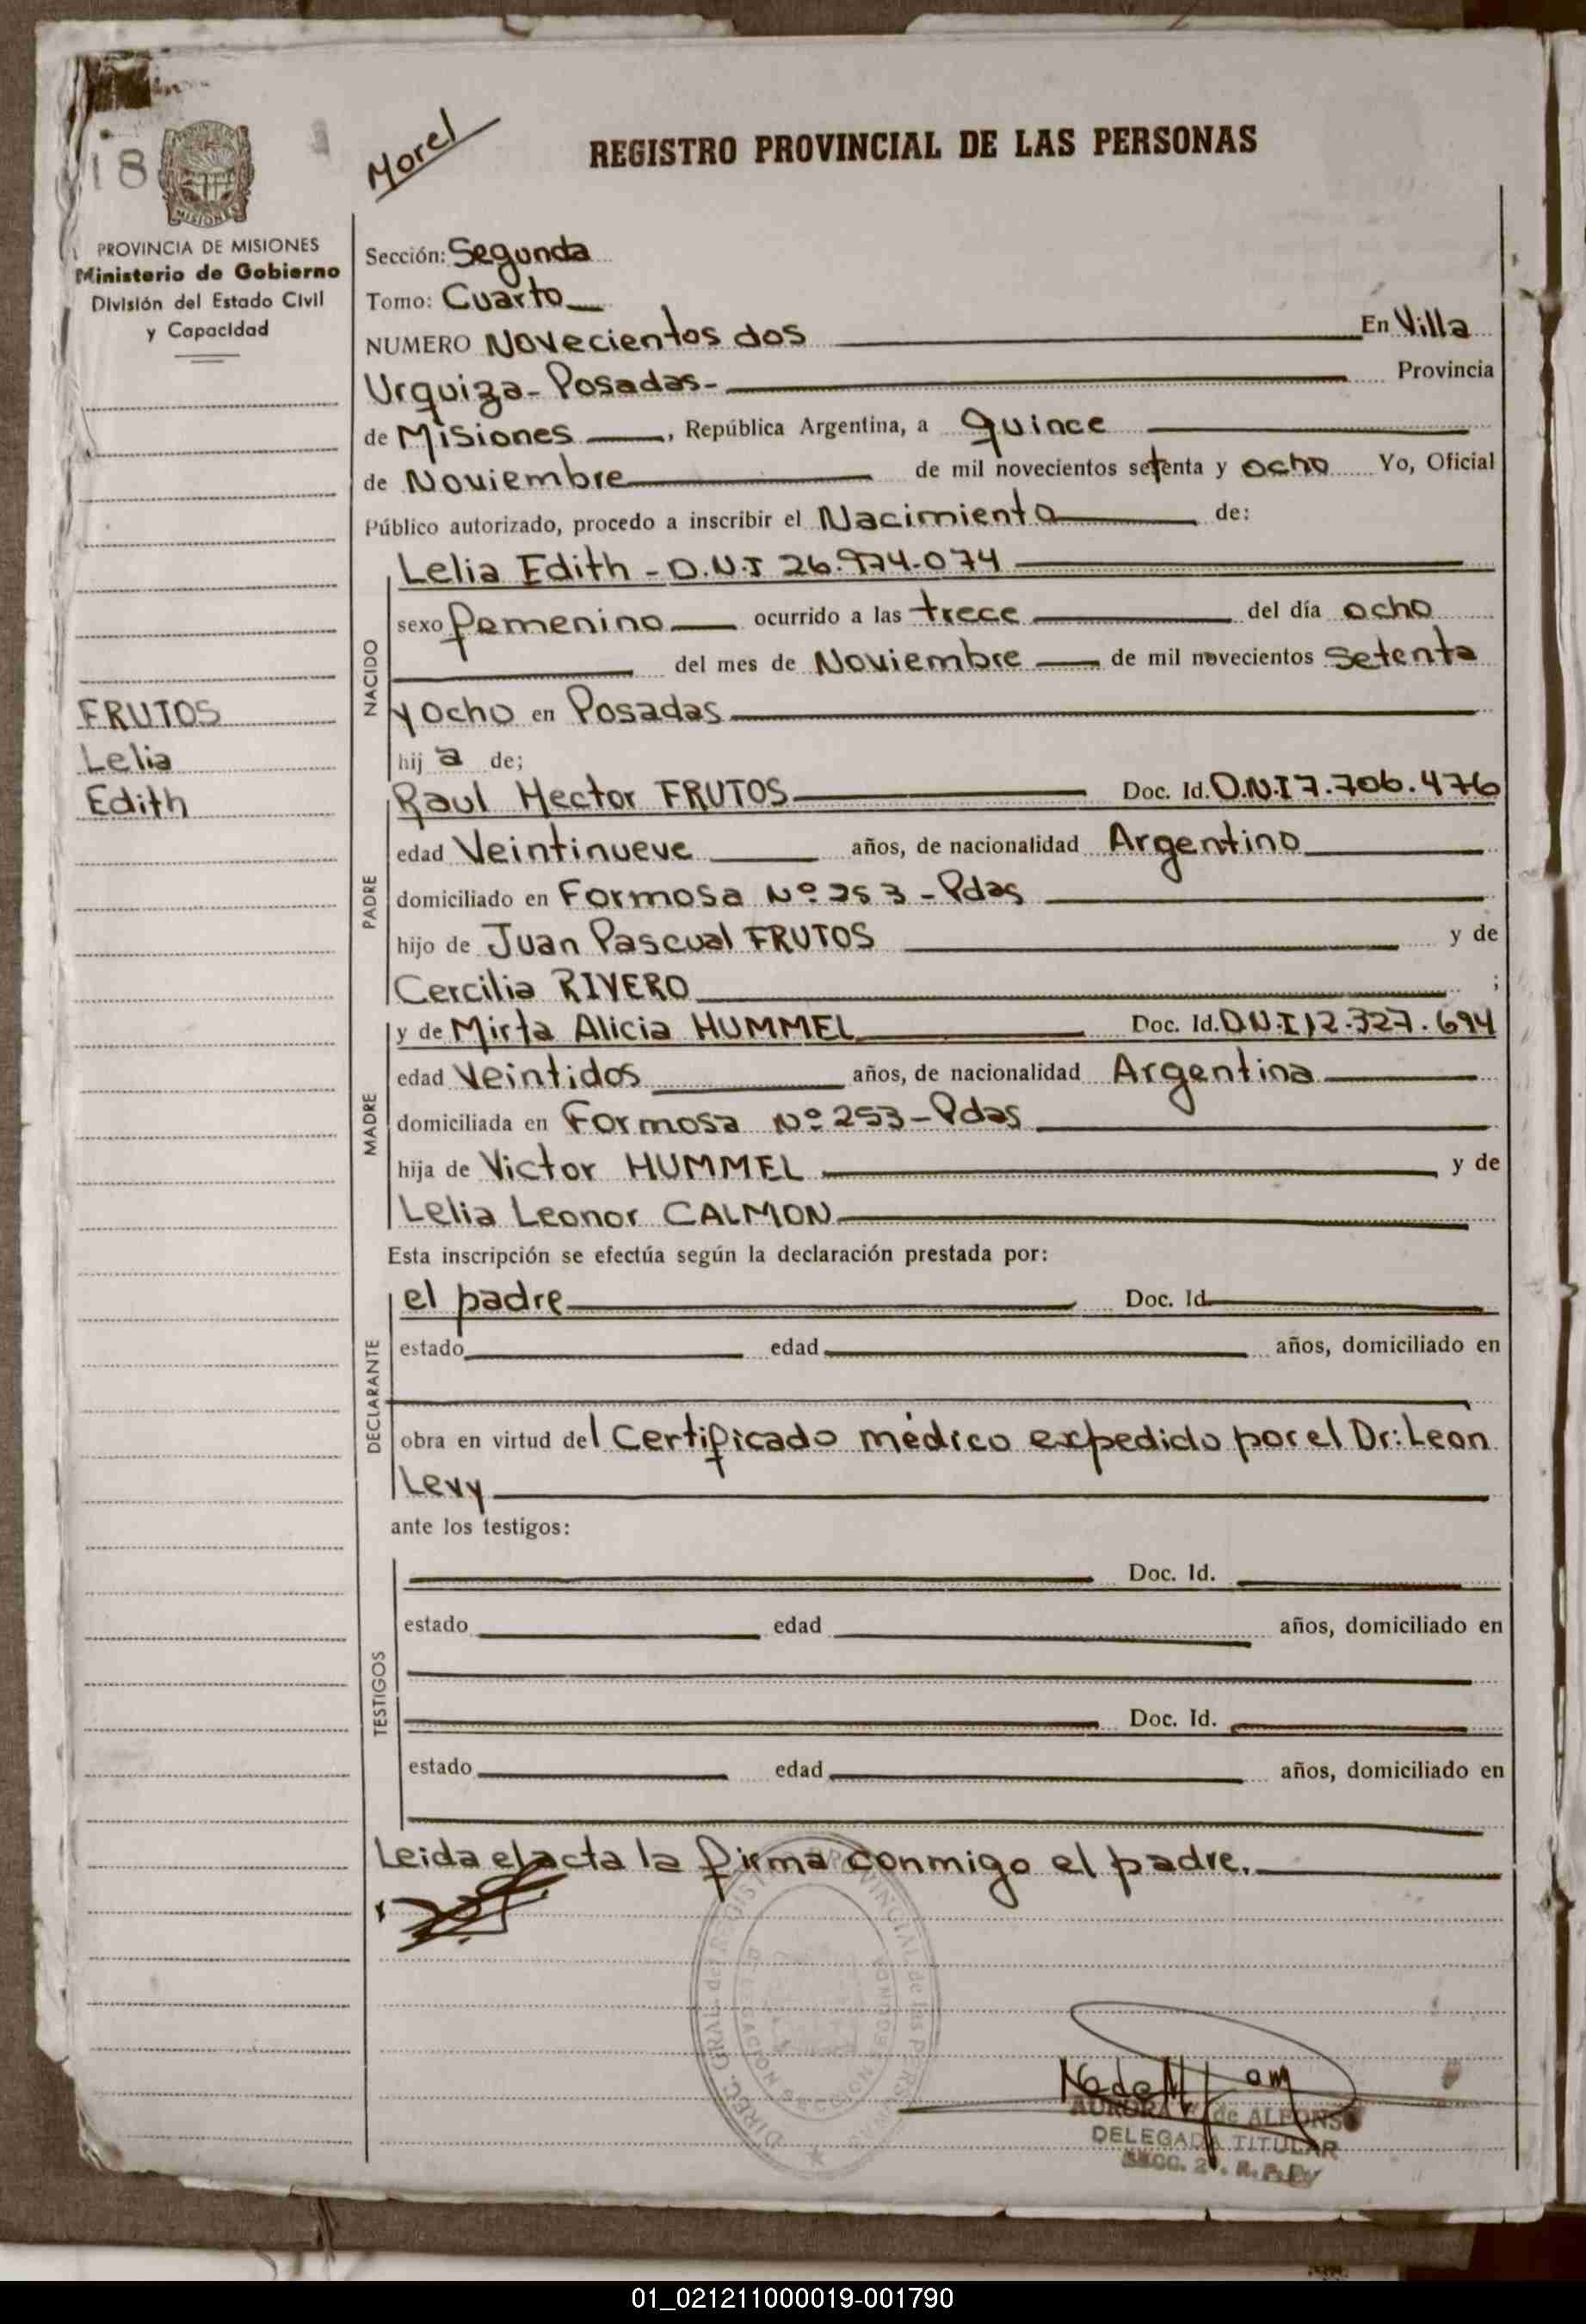 18
MISIONES
PROVINCIA DE MISIONES
Ministerio de Gobierno
División del Estado Civil
y Capacidad
FRUTOS
Lelia
Edith
Morel
REGISTRO PROVINCIAL DE LAS PERSONAS
Sección: Segunda
Tomo: Cuarto
NUMERO Novecientos dos En Villa
Urquiza - Posadas - Provincia
de Misiones, República Argentina, a quince
de Noviembre de mil novecientos setenta y ocho Yo, Oficial
Público autorizado, procedo a inscribir el Nacimiento de:
NACIDO
Lelia Edith - D.N.I 26.974.074
sexo femenino ocurrido a las trece del día ocho
del mes de Noviembre de mil novecientos setenta
y ocho en Posadas
hija de;
PADRE
Raul Hector FRUTOS Doc. Id. D.N.I 7.706.476
edad Veintinueve años, de nacionalidad Argentino
domiciliado en Formosa Nº 253 - Pdas
hijo de Juan Pascual FRUTOS y de
Cercilia RIVERO ;
MADRE
y de Mirta Alicia HUMMEL Doc. Id. D.N.I 12.327.694
edad Veintidos años, de nacionalidad Argentina
domiciliada en Formosa Nº 253 - Pdas
hija de Victor HUMMEL y de
Lelia Leonor CALMON
Esta inscripción se efectúa según la declaración prestada por:
DECLARANTE
el padre Doc. Id.
estado edad años, domiciliado en
obra en virtud del Certificado médico expedido por el Dr: Leon
Levy
ante los testigos:
TESTIGOS
Doc. Id.
estado edad años, domiciliado en
Doc. Id.
estado edad años, domiciliado en
Leida el acta la firma conmigo el padre.
AURORA de ALFONSO
DELEGADA TITULAR
SECC. 2ª. R.P.P.
01_021211000019-001790